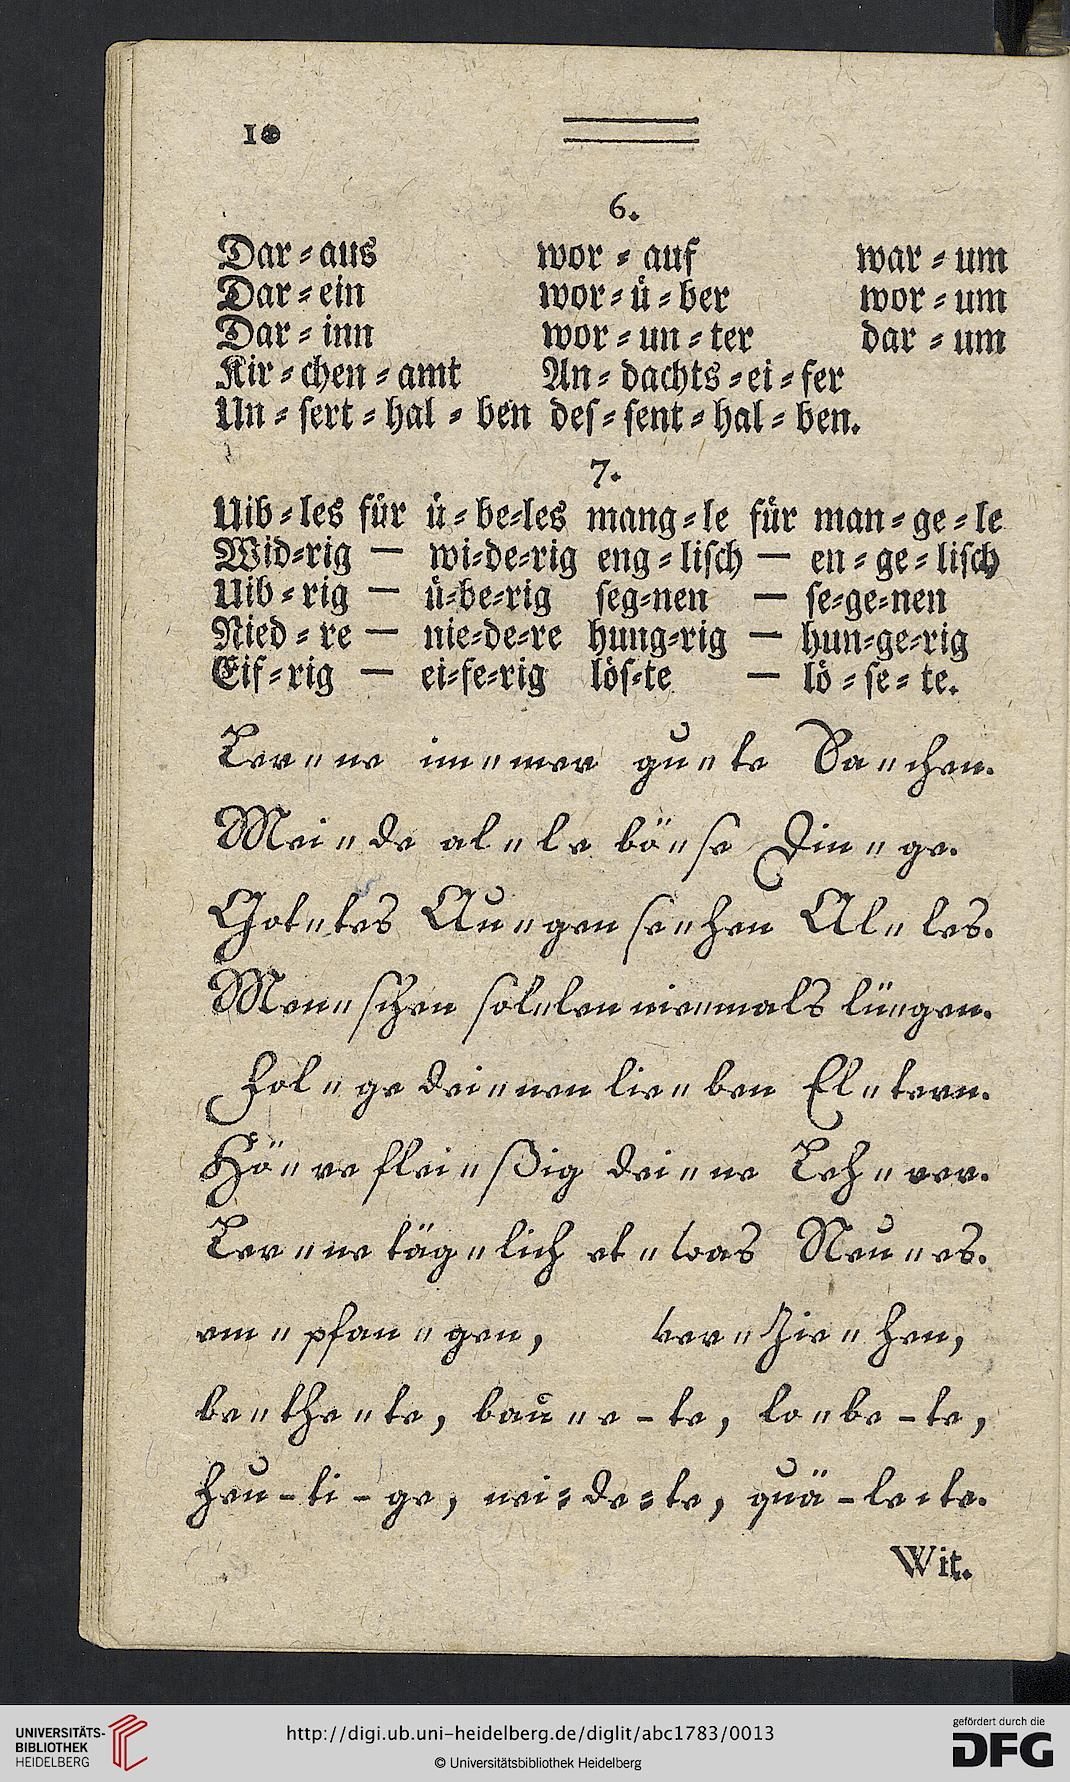 10
6.
Dar⸗aus wor⸗auf war⸗um
Dar⸗ein wor⸗ü⸗ber wor⸗um
Dar⸗inn wor⸗un⸗ter dar⸗um
Kir⸗chen⸗amt An⸗dachts⸗ei⸗fer
Un⸗ſert⸗hal⸗ben deſ⸗ſent⸗hal⸗ben.
7.
Uib⸗les für ü⸗be⸗les mang⸗le für man⸗ge⸗le
Wid⸗rig — wi⸗de⸗rig eng⸗liſch — en⸗ge⸗liſch
Uib⸗rig — ü⸗be⸗rig ſeg⸗nen — ſe⸗ge⸗nen
Nied⸗re — nie⸗de⸗re hung⸗rig — hun⸗ge⸗rig
Eif⸗rig — ei⸗fe⸗rig löſ⸗te — lö⸗ſe⸗te.
Ler〃ne im〃mer gu〃te Sa〃chen.
Mei〃de al〃le bö〃ſe Din〃ge.
Got〃tes Au〃gen ſe〃hen Al〃les.
Men〃ſchen ſol〃len nie〃mals lü〃gen.
Fol〃ge dei〃nen lie〃ben El〃tern.
Hö〃re flei〃ßig dei〃ne Leh〃rer.
Ler〃ne täg〃lich et〃was Neu〃es.
em〃pfan〃gen, ver〃zie〃hen,
be〃the〃te, bau〃e-te, lo〃be-te,
heu-ti-ge, wei⸗de⸗te, quä-le〃te.
Wit.
UNIVERSITÄTS-
BIBLIOTHEK
HEIDELBERG
http://digi.ub.uni-heidelberg.de/diglit/abc1783/0013
© Universitätsbibliothek Heidelberg
gefördert durch die
DFG